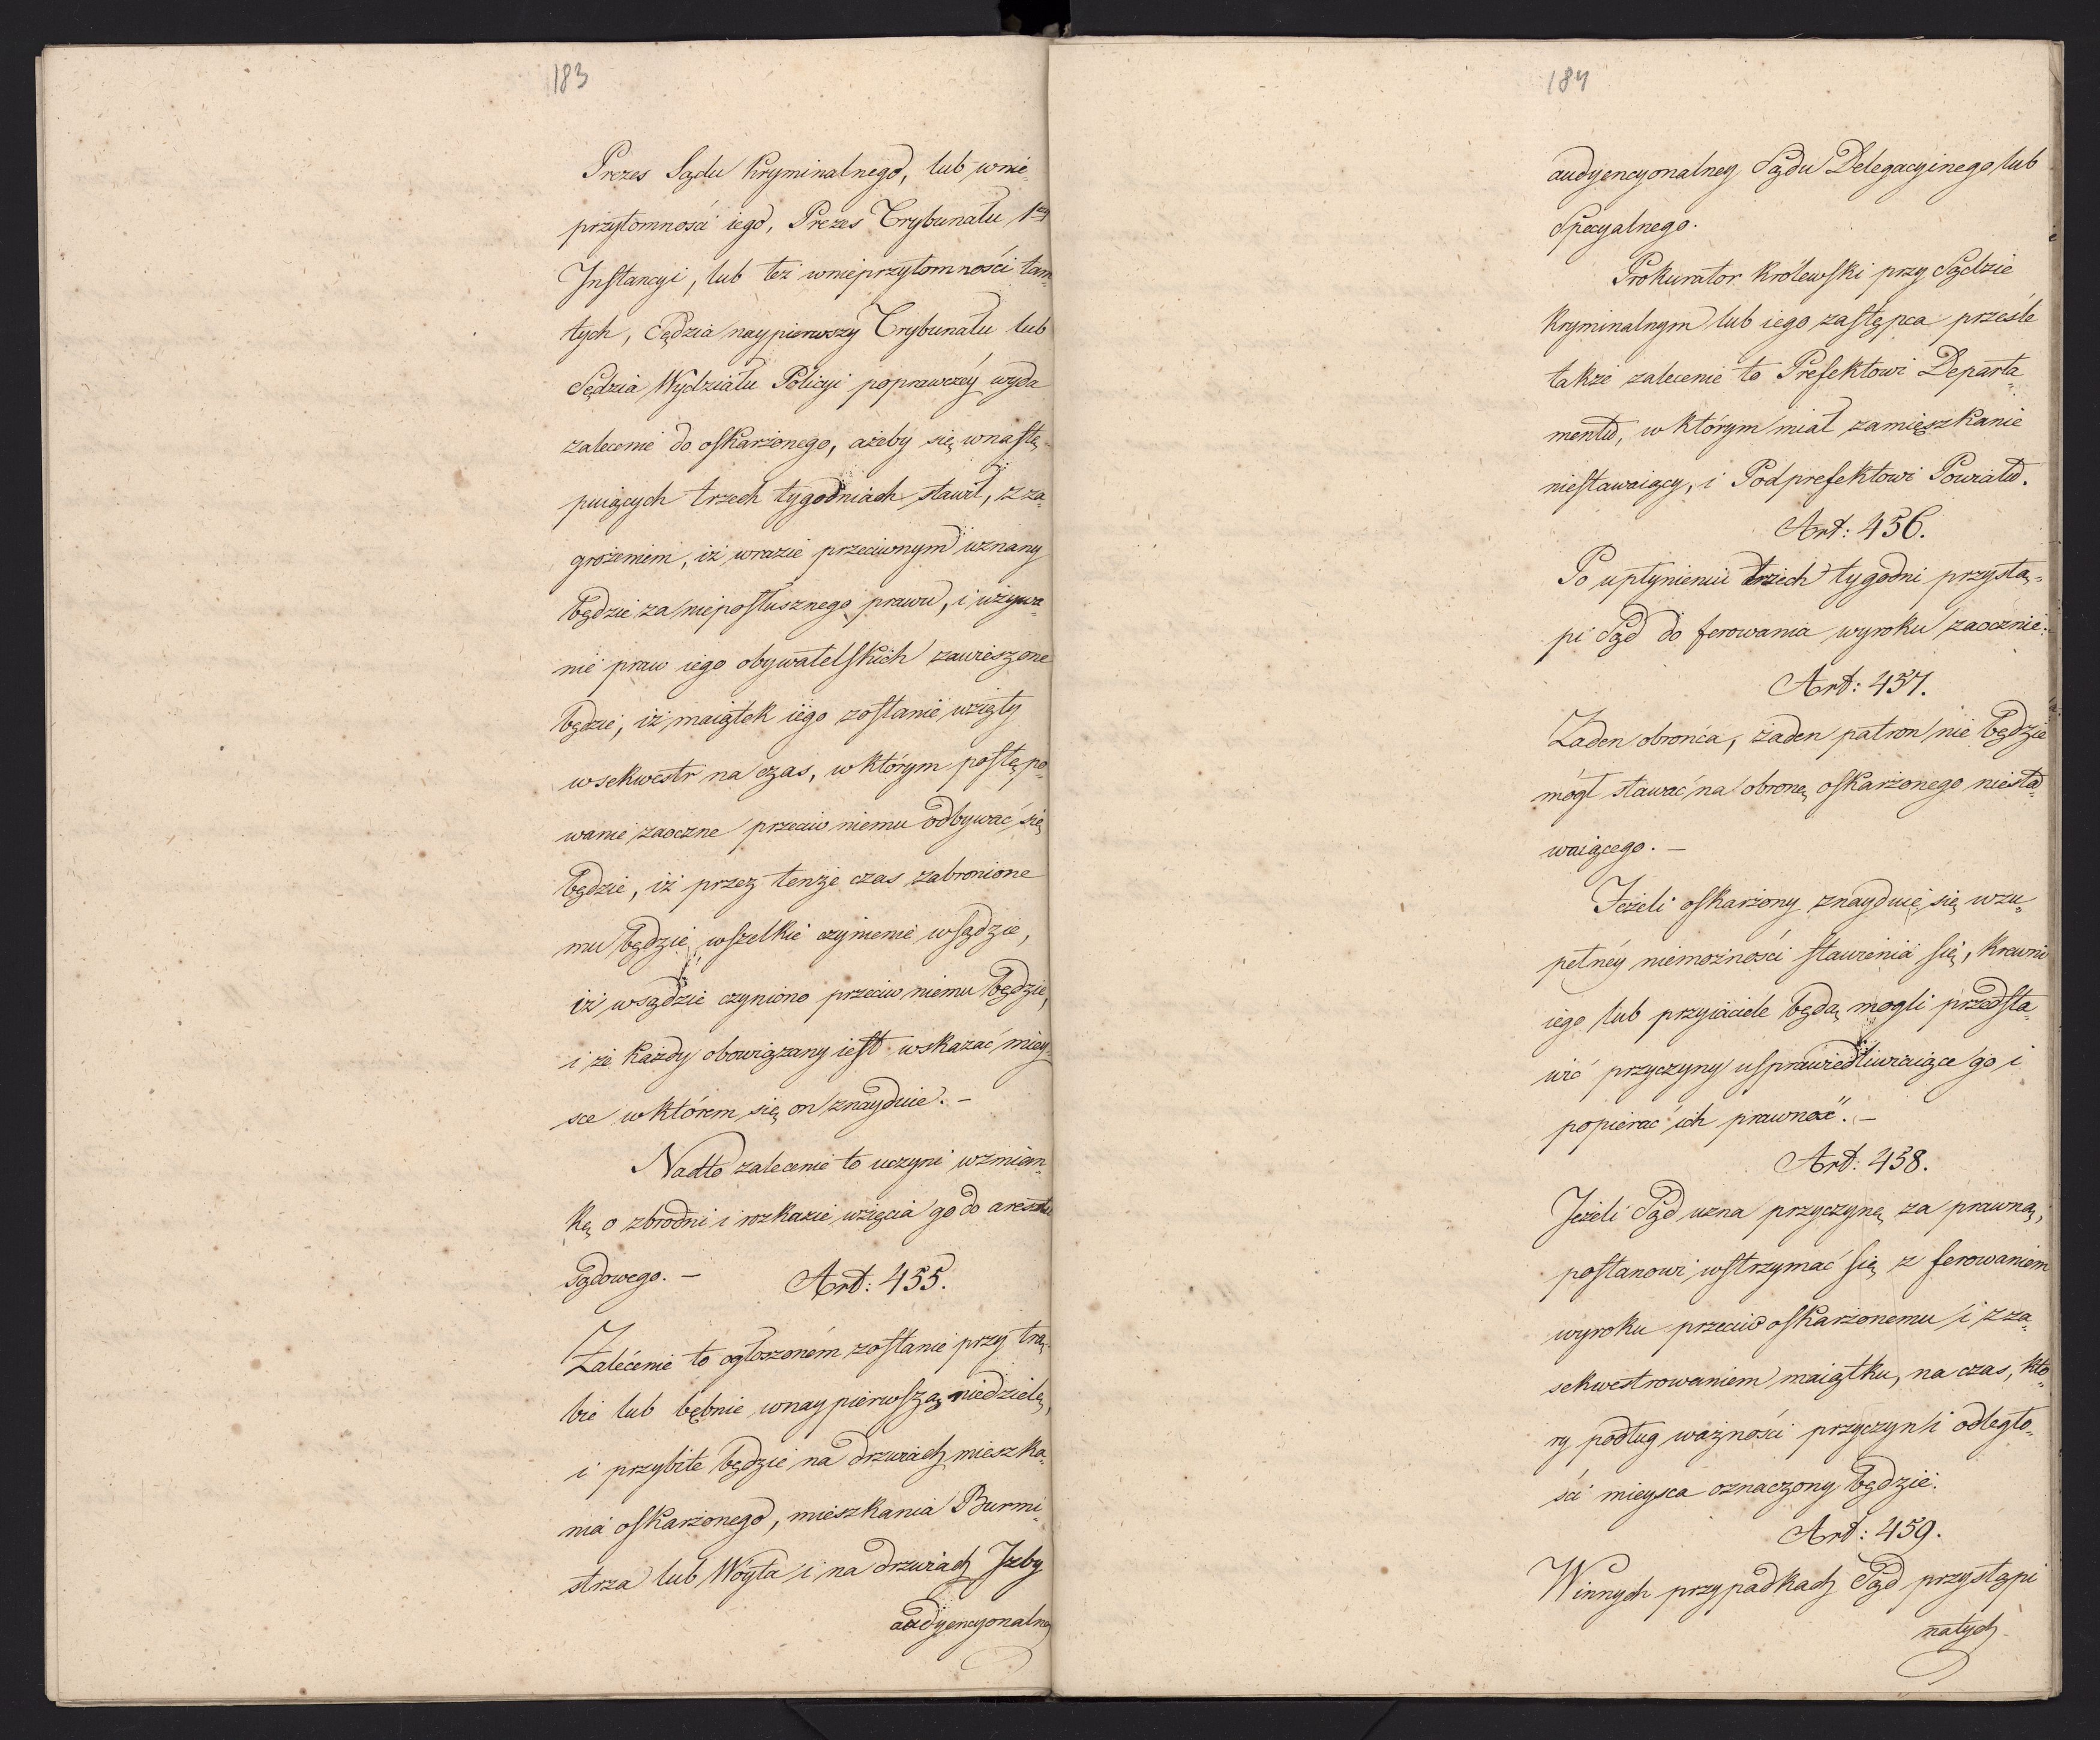 183
Prezes Sądu Kryminalnego, lub wnie-
przytomności iego, Prezes Trybunału 1éy
Instancyi, lub też wnieprzytomności tam-
tych, Sędzia naypierwszy Trybunału lub
Sędzia Wydziału Policyi poprawczéy wyda
zalecenie do oskarżonego, ażeby się wnastę-
puiących trzech tygodniach stawił, z za-
grożeniem, iż wrazie przeciwnym uznany
będzie za nieposłusznego prawu, i używa-
nie praw iego obywatelskich zawieszone
będzie, iż maiątek iego zostanie wzięty
w sekwestr na czas, w którym postępo-
wanie zaoczne przeciw niemu odbywać się
będzie, iż przez tenże czas zabronione
mu będzie wszelkie czynienie wsądzie,
iż wsądzie czyniono przeciw niemu będzie,
i że każdy obowiązany iest wskazać miey-
sce w którem się on znayduie. -
Nadto zalecenie to uczyni wzmian-
kę o zbrodni i rozkazie wzięcia go do aresztu
Sądowego. -
Art: 455.
Zalécenie to ogłoszoném zostanie przy trą-
bie lub bębnie wnaypierwszą niedzielę,
i przybite będzie na drzwiach mieszka-
nia oskarżonego, mieszkania Burmi-
strza lub Wóyta i na drzwiach Izby
audyencyonalney
184
audyencyonalney Sądu Delegacyinego lub
Specyalnego.
Prokurator Królewski przy Sądzie
Kryminalnym lub iego zastępca prześle
także zalecenie to Prefektowi Departa-
mentu, w którym miał zamięszkanie
niestawaiący, i Podprefektowi Powiatu.
Art: 456.
Po upłynieniu trzech tygodni przystą-
pi Sąd do ferowania wyroku zaocznie.
Art: 457.
Żaden obrońca, żaden patron nie będzie
mógł stawać na obronę oskarżonego niesta-
waiącego. -
Jeżeli oskarżony znayduie się wzu-
pełnéy niemożności stawienia się, Krewni
iego lub przyiaciele będą mogli przedsta-
wić przyczyny usprawiedliwiaiące go i
popierać ich prawność. -
Art: 458.
Jeżeli Sąd uzna przyczynę za prawną,
postanowi wstrzymać się z ferowaniem
wyroku przeciw oskarżonemu i z za-
sekwestrowaniem maiątku, na czas, któ-
ry podług ważności przyczyn i odległo-
ści mieysca oznaczony będzie.
Art: 459.
Winnych przypadkach Sąd przystąpi
natych-